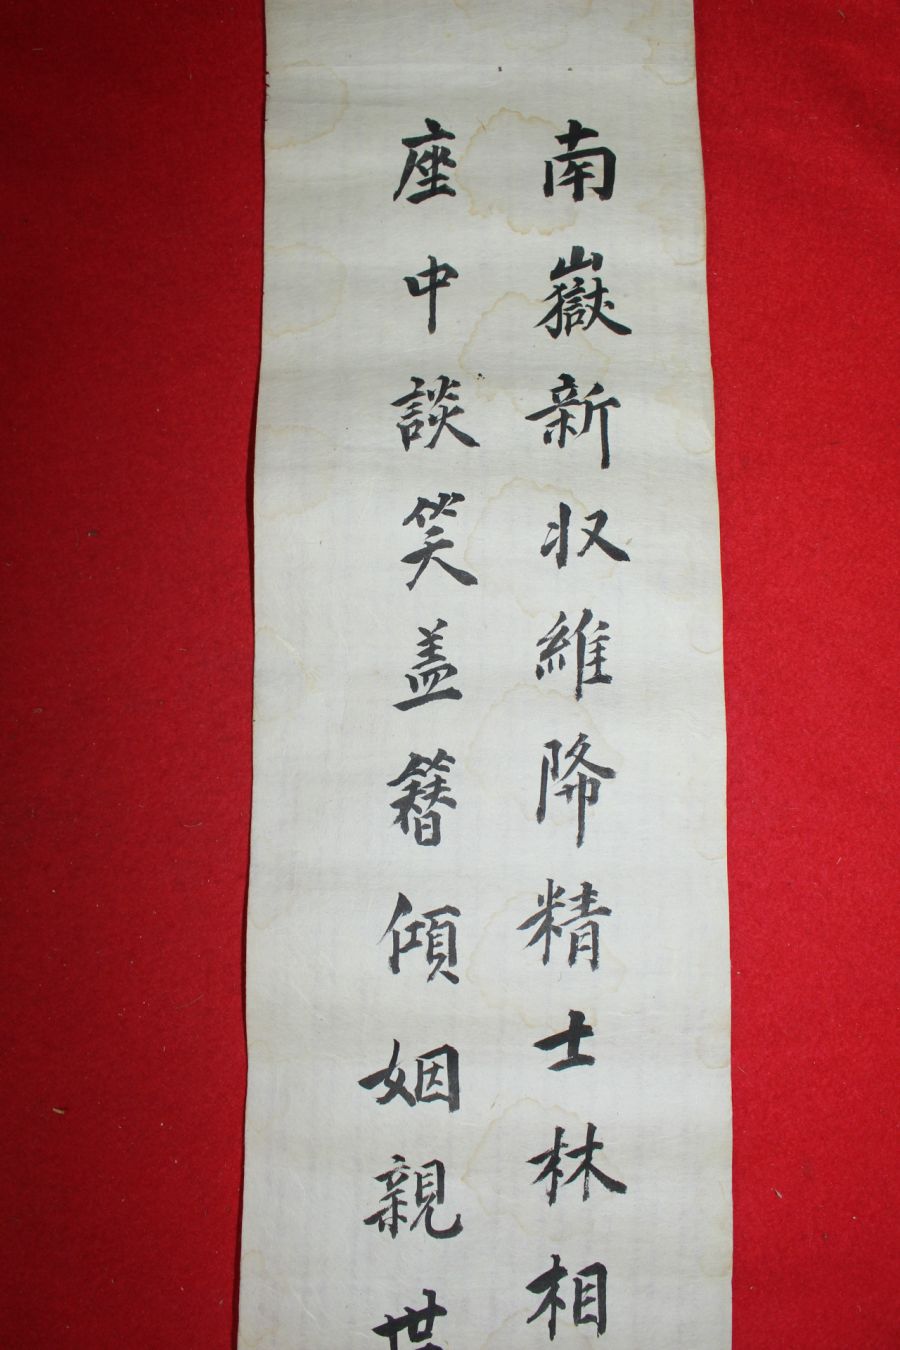 南嶽新収維降精士林相
座中談笑盖簪傾姻親世